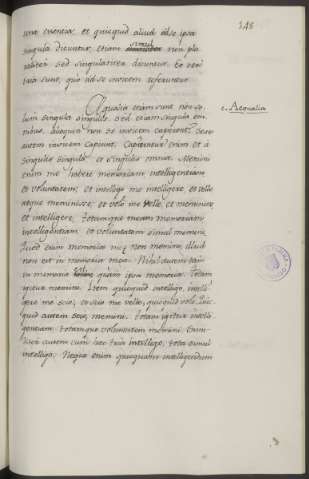 348
una essentia: et quicquid aliud ad se ipsa
singula dicuntur, etiam simul non plu-
raliter sed singulariter dicuntur. Eo vero
tria sunt, quo ad se invicem referuntur.
c. Aequalia
Aequalia etiam sunt non so-
lum singula singulis, sed etiam singula om-
nibus, alioquin non se invicem caperent. Se
autem invicem capiunt. Capiuntur enim et à
singulis singula et singulis omnia. Memini
enim me habere memoriam intelligentiam
et voluntatem; et intelligo me intelligere, et velle
atque meminisse; et volo me velle, et meminisse,
et intelligere, totamque meam memoriam
intelligentiam, et voluntatem simul memini.
Quod enim memoriae meae non memini, illud
non est in memoria mea. Nihil autem tam
in memoria quam ipsa memoria. Totam
igitur memini. Item quicquid intelligo, intelli-
gere me scio, et scio me velle, quicquid volo. Quic-
quid autem scio, memini. Totam igitur intelli-
gentiam, totamque voluntatem memini. Simi-
liter autem cum haec tria intelligo, tota simul
intelligo. Neque enim quicquam intelligibilium